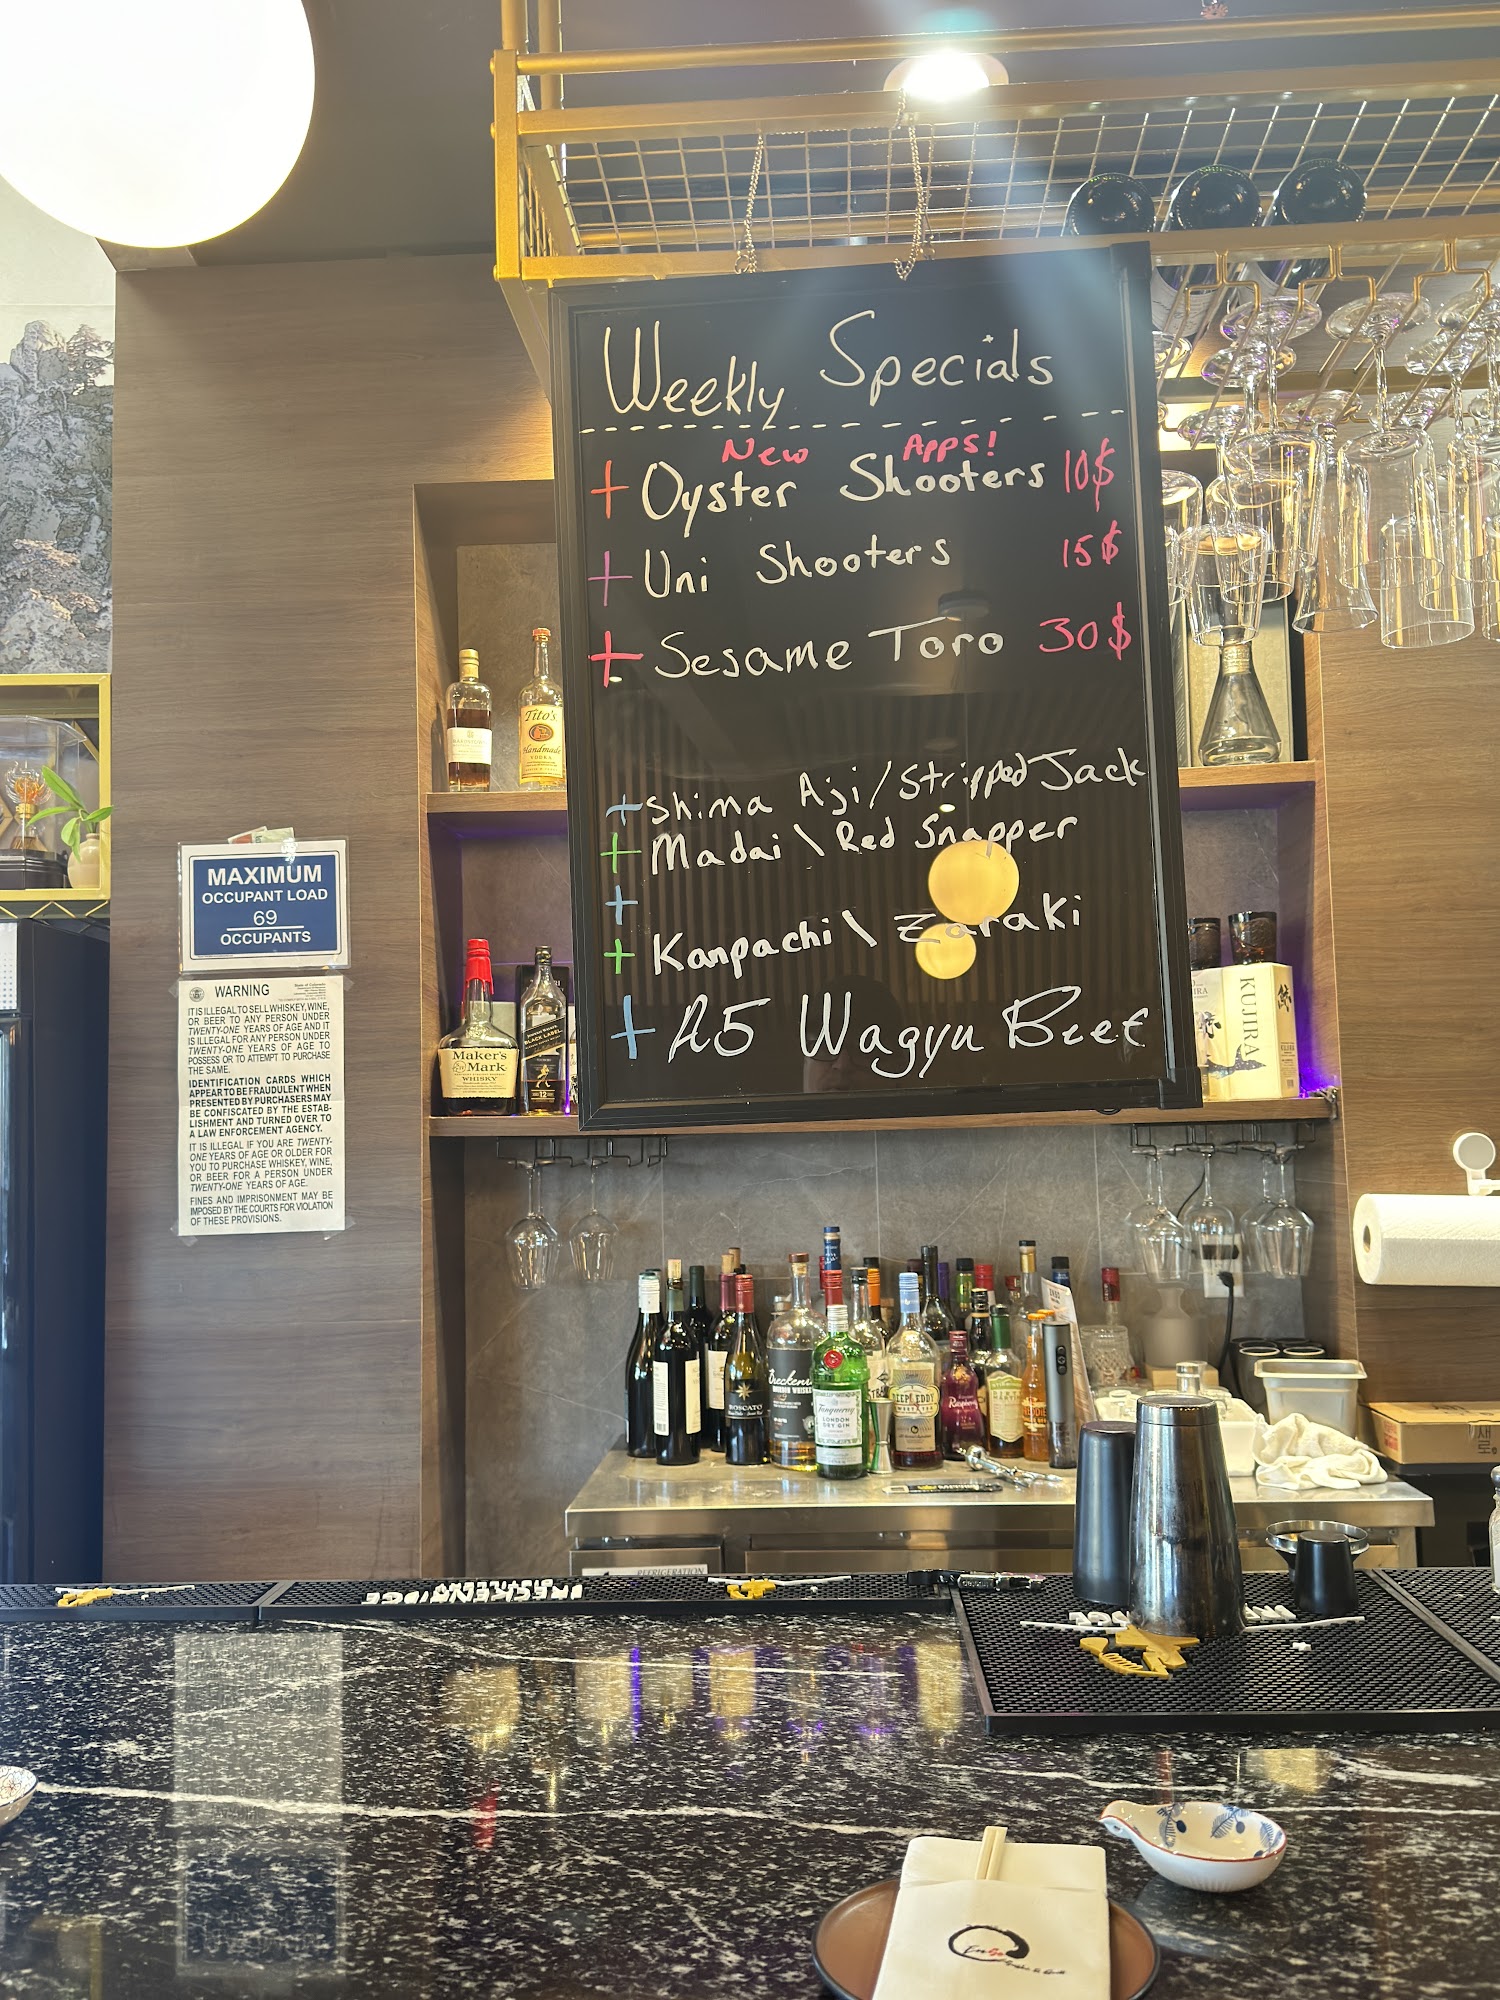 Weekly Specials
New Apps!
+ Oyster Shooters 10$
+ Uni Shooters 15$
+ Sesame Toro 30$
+ Shima Aji / Stripped Jack
+ Madai \ Red Snapper
+
+ Kanpachi \ Zaraki
+ A5 Wagyu Beef
Tito's
Handmade
VODKA
MAXIMUM
OCCUPANT LOAD
69
OCCUPANTS
WARNING
IT IS ILLEGAL TO SELL WHISKEY, WINE,
OR BEER TO ANY PERSON UNDER
TWENTY-ONE YEARS OF AGE AND IT
IS ILLEGAL FOR ANY PERSON UNDER
TWENTY-ONE YEARS OF AGE TO
POSSESS OR TO ATTEMPT TO PURCHASE
THE SAME.
IDENTIFICATION CARDS WHICH
APPEAR TO BE FRAUDULENT WHEN
PRESENTED BY PURCHASERS MAY
BE CONFISCATED BY THE ESTAB-
LISHMENT AND TURNED OVER TO
A LAW ENFORCEMENT AGENCY.
IT IS ILLEGAL IF YOU ARE TWENTY-
ONE YEARS OF AGE OR OLDER FOR
YOU TO PURCHASE WHISKEY, WINE,
OR BEER FOR A PERSON UNDER
TWENTY-ONE YEARS OF AGE.
FINES AND IMPRISONMENT MAY BE
IMPOSED BY THE COURTS FOR VIOLATION
OF THESE PROVISIONS.
Maker's
Mark
WHISKY
BLACK LABEL
12
KUJIRA
MOSCATO
Breckenri
BOURBON WHISKE
Tanqueray
LONDON
DRY GIN
DEEP EDDY
새로
REFRIGERATION
BRECKENRIDGE
DISTILLERY